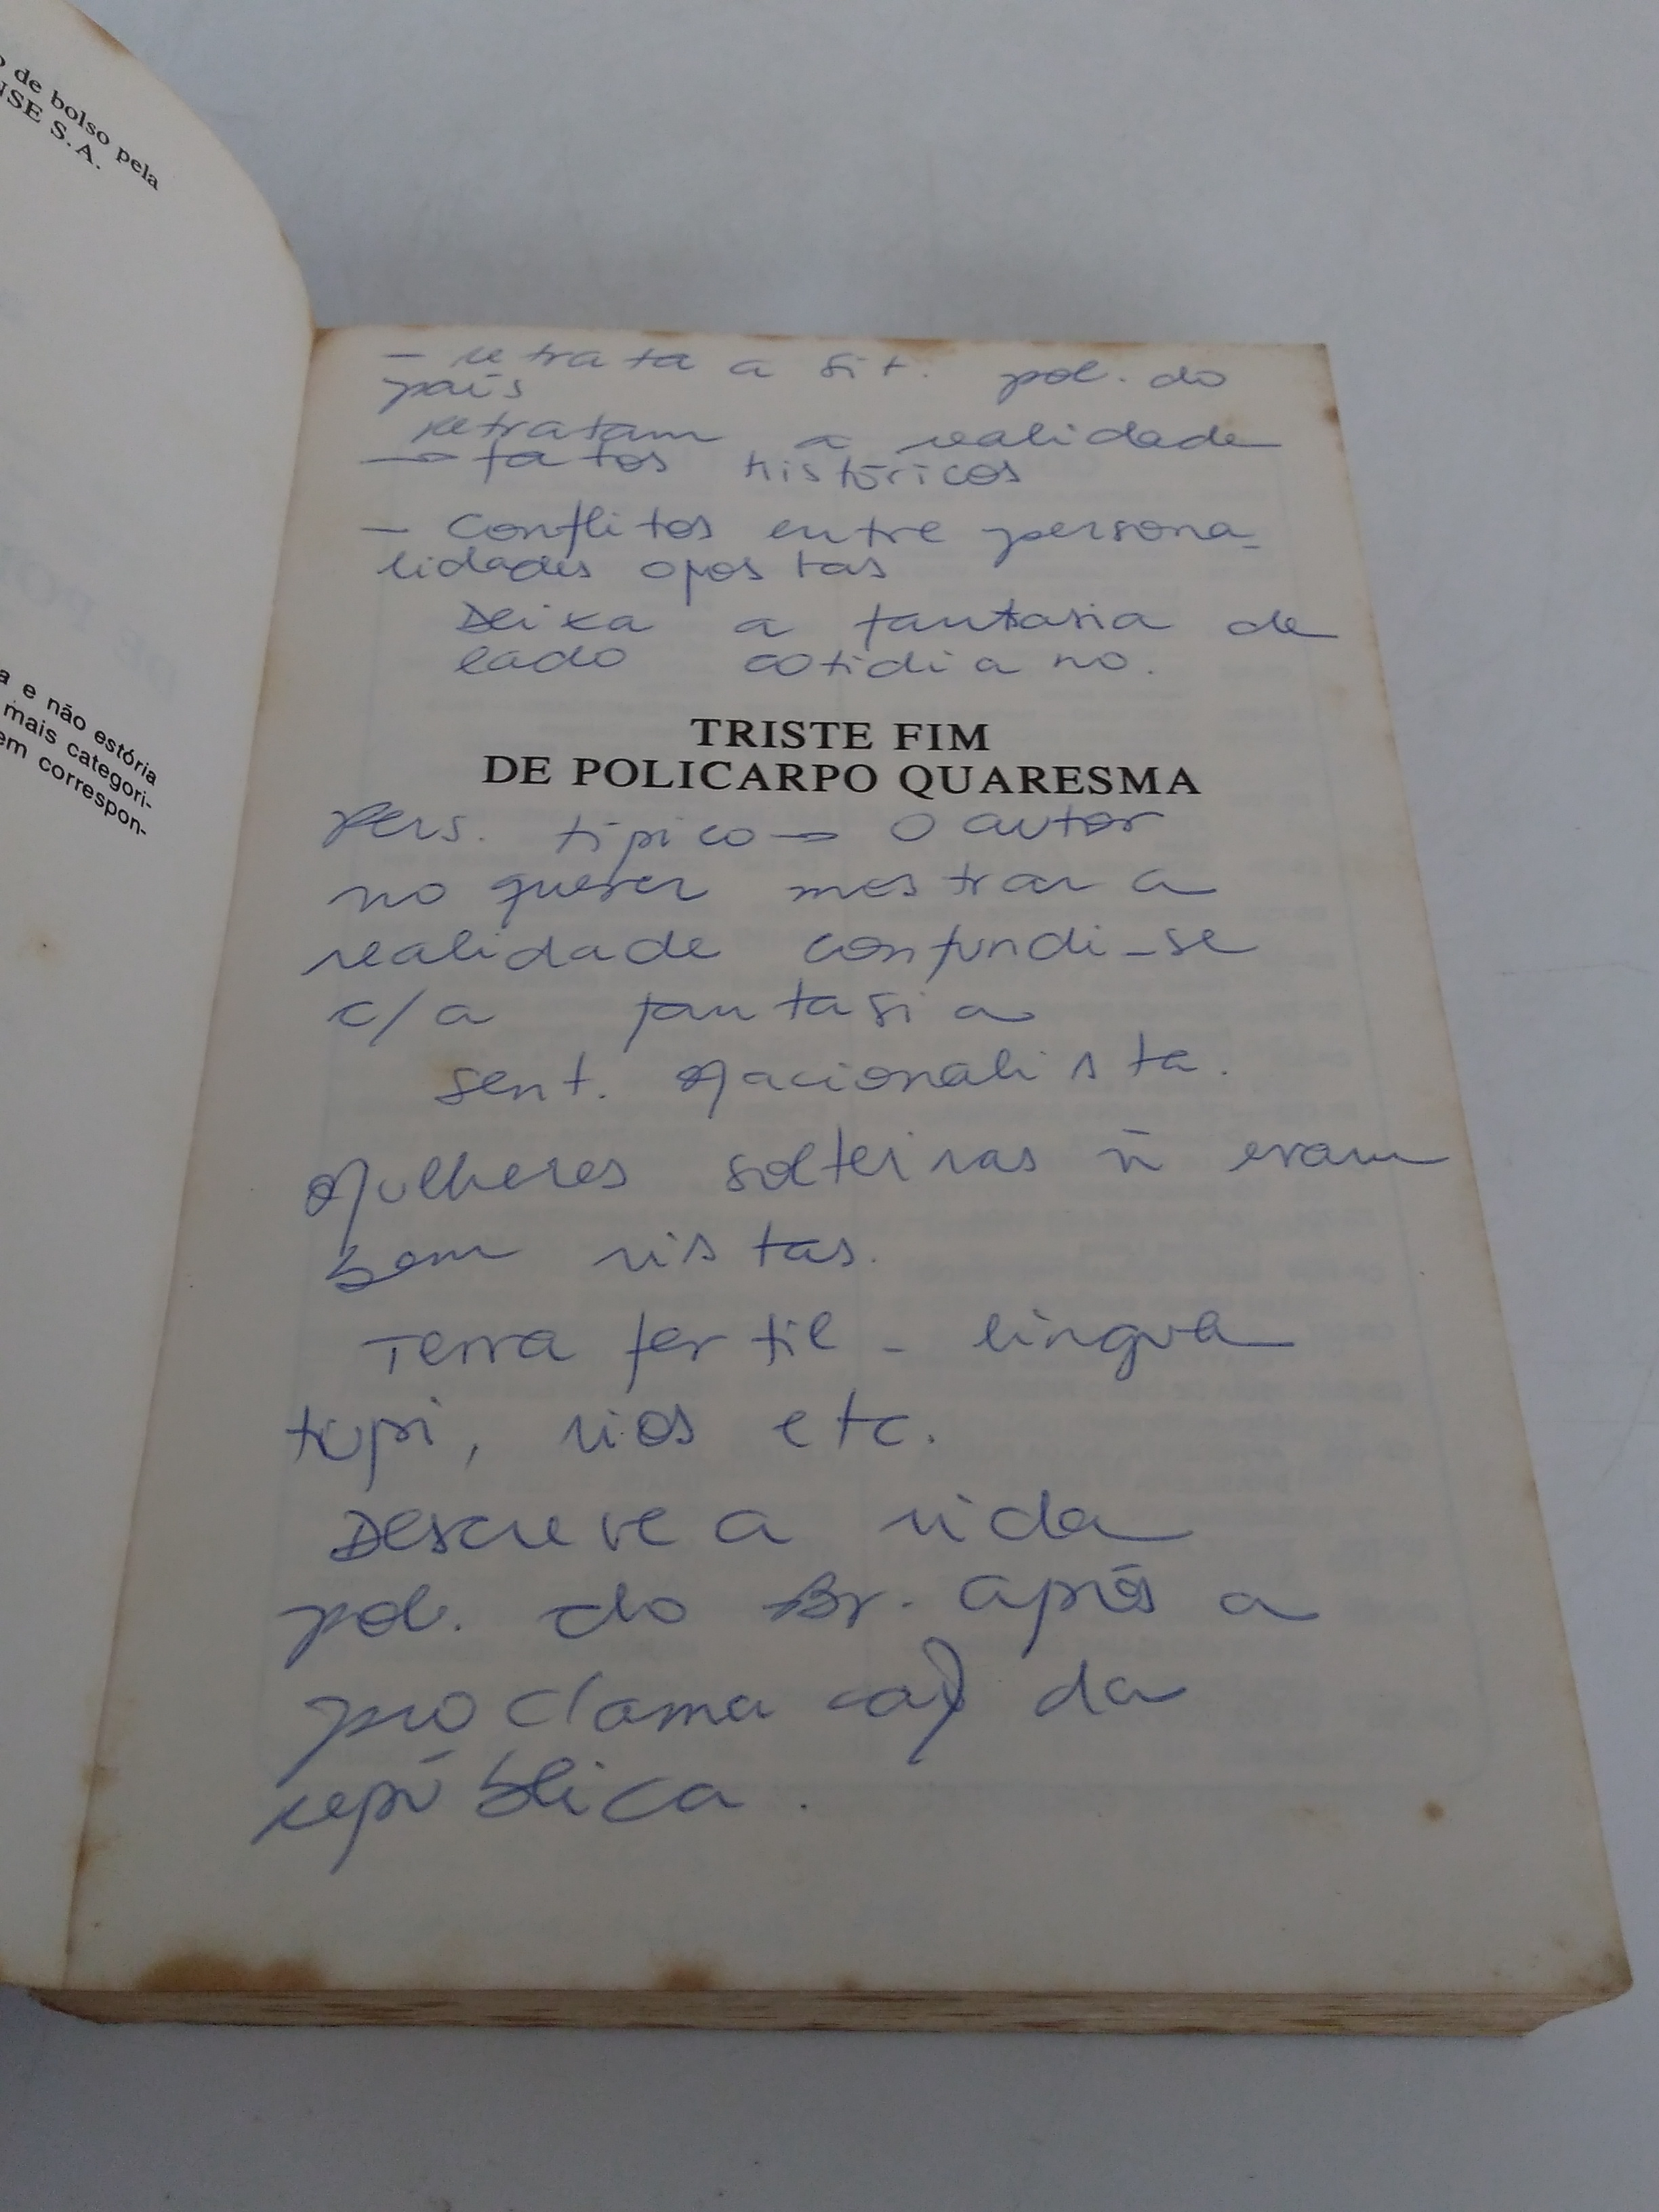 o de bolso pela
NSE S.A.
a e não estória
mais categori-
em correspon-
– retrata a sit. pol. do
país
retratam a realidade
→ fatos históricos
– Conflitos entre persona-
lidades opostas
Deixa a fantasia de
lado cotidiano.
TRISTE FIM
DE POLICARPO QUARESMA
Pers. típico → O autor
no querer mostrar a
realidade confundi-se
c/a fantasia
sent. Nacionalista.
Mulheres solteiras ñ eram
bem vistas.
Terra fertil - lingua
tupi, rios etc.
Descreve a vida
pol. do Br. após a
proclamação da
república.